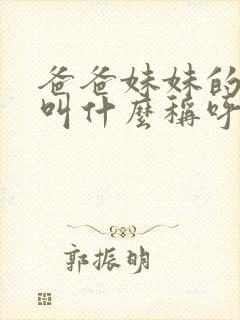 爸爸妹妹的
叫什麼稱呼
郭振明